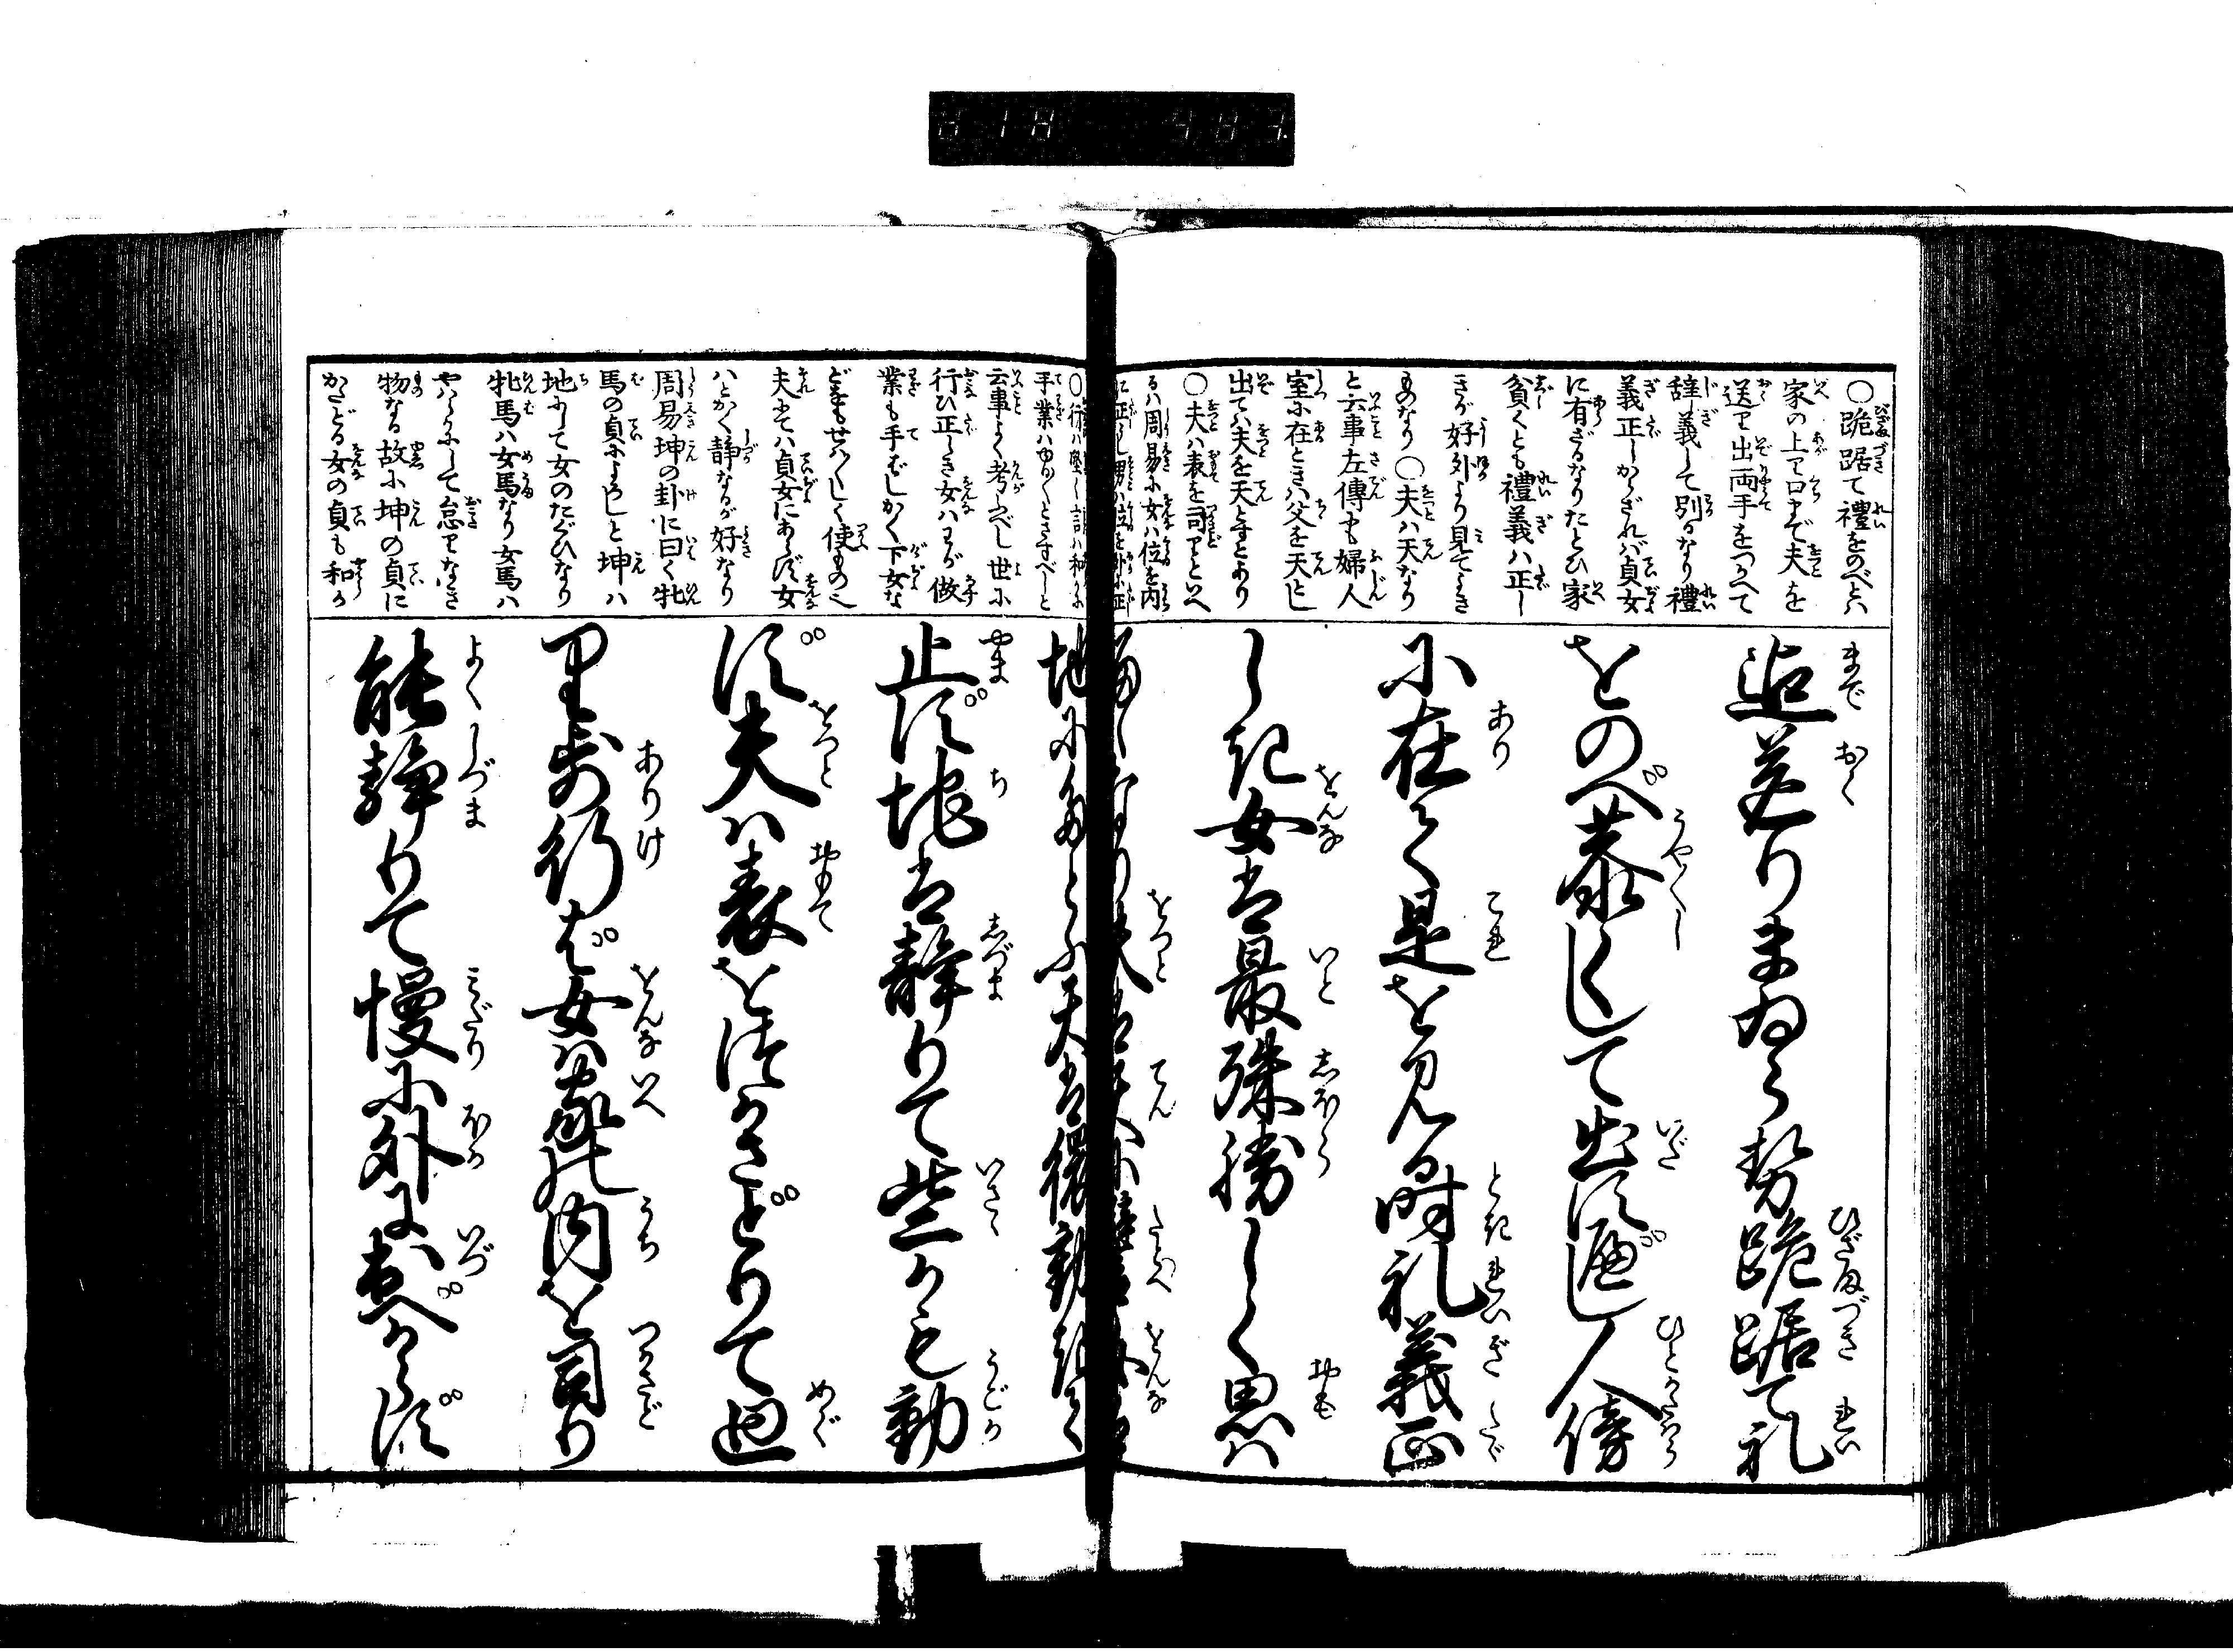 ○跪踞て禮をのべとハ
家の上り口まで夫を
送り出両手をつかへて
辞義して別るなり禮
義正しからざれバ貞女
に有ざるなりたとひ家
貧くとも禮義ハ正し
きが好外より見てよき
ものなり○夫ハ天なり
と云事左傳も婦人
室に在ときハ父を天とし
出てハ夫を天とすとあり
○夫ハ表を司りといへ
るハ周易に女ハ位を内
に正し男ハ位を外に正
手業ハゆるくとさすべしと
云事よく考ふべし世に
行ひ正しき女ハわが做
業も手ばしかく下女な
どをもせハしく使ものへ
夫とてハ貞女にあらず女
ハとかく静なるが好なり
周易坤の卦に曰く牝
馬の貞によろしと坤ハ
地にして女のたぐひなり
牝馬ハ女馬なり女馬ハ
やハらかにして怠りなき
物なる故に坤の貞に
かたどる女の貞も和か
迄送りまゐらせ跪踞て礼
をのべ恭しくして出すべし人傍
に在て是を見る時礼義正
しき女は最殊勝しく思ハ
地にたとふ天は徳動起て
止ず地は静りて些かも動
ず夫ハ表をつかさどりて廻
り歩行ば女ハ家の内を司り
能静りて慢に外に出べからず